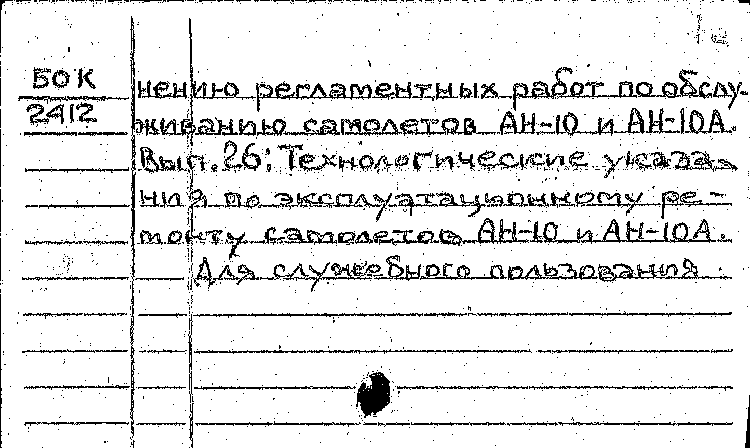 БОК
2412
нению регламентных работ по обслу-
живанию самолетов АН-10 и АН-10А.
Вып. 26: Технологические указа-
ния по эксплуатационному ре-
монту самолетов АН-10 и АН-10А.
Для служебного пользования.